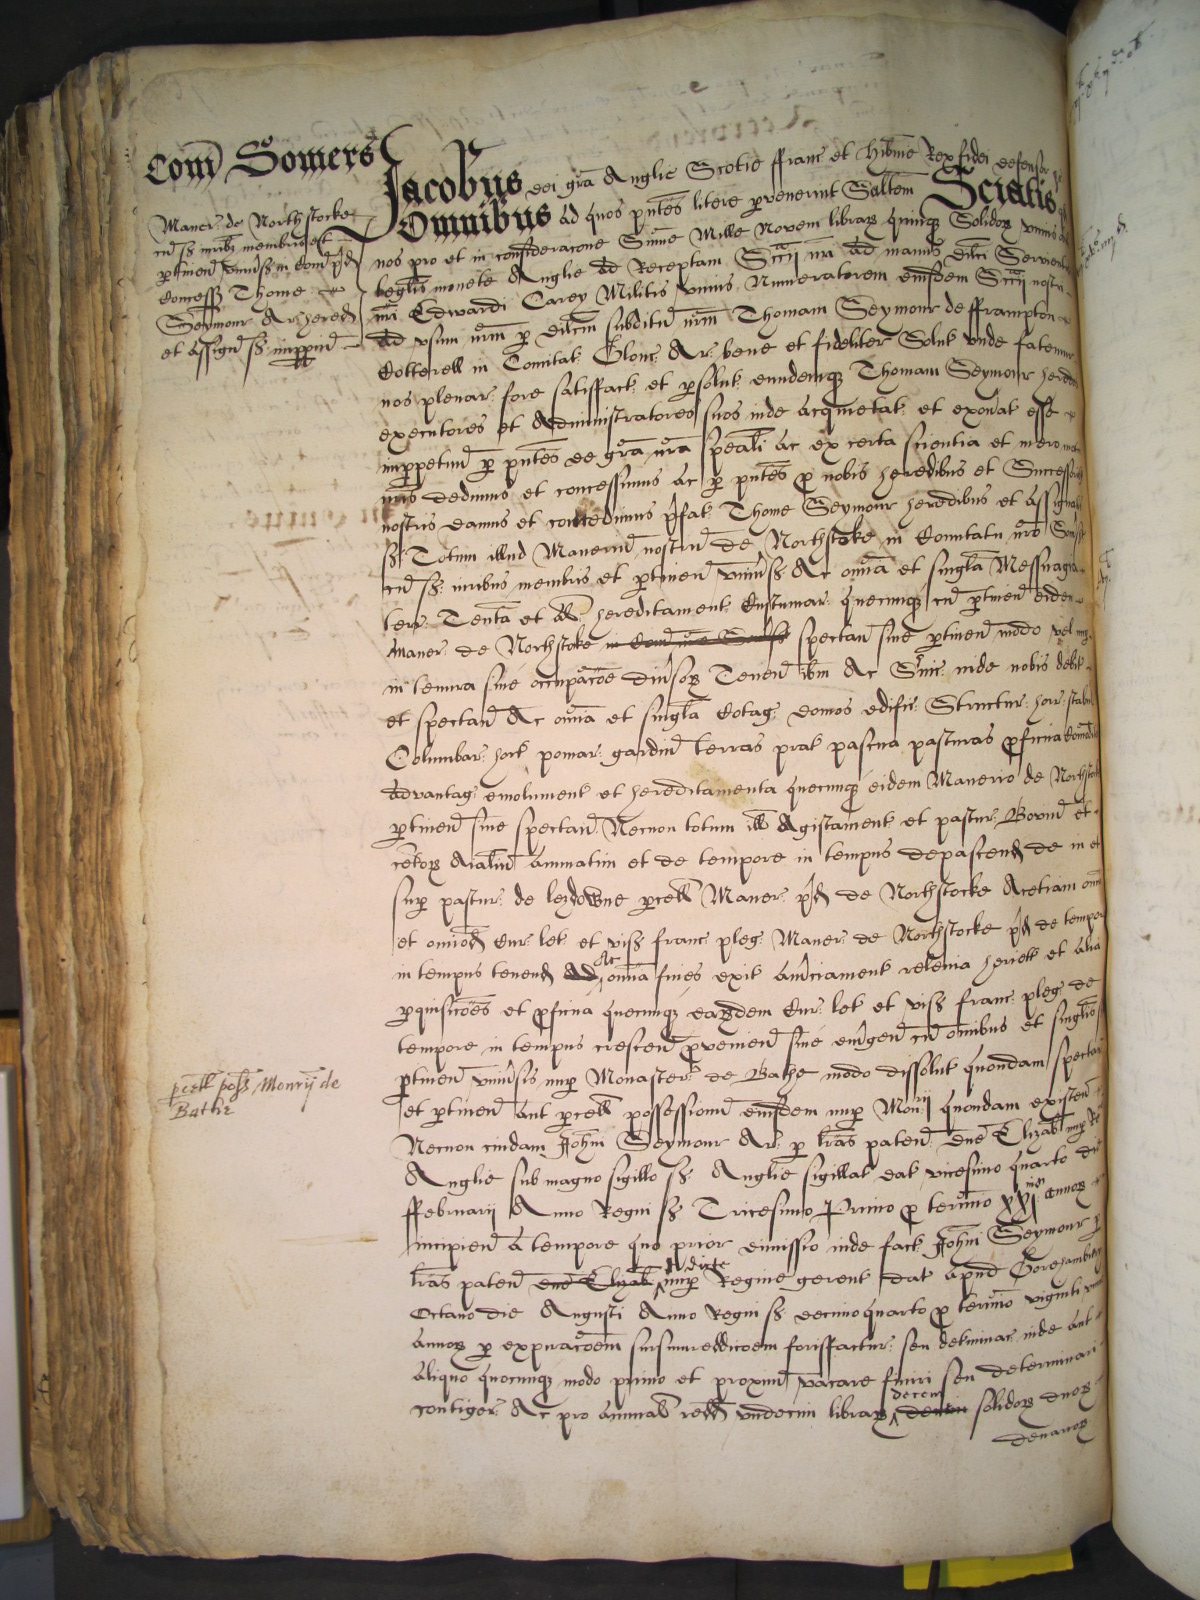 Com Somers
Maner de Northstocke
cu s iurib membris et
ptinen univs in Com pd
Concess Thome
Seymour Ar hered
et assign s imppm
Jacobus dei gra Anglie Scotie ffranc et Hibnie Rex fidei defensor
Omnibus ad quos pntes littere pervenerint Saltem Sciatis
nos pro et in consideracone Sume Mille Novem librar quinq Solidor unius
legalis monete Anglie ad Receptam Sccij nri ad manus dilci Servient
nri Edwardi Carey Militis unius Numeratorem eiusdem Sccij nostri
ad usum nrm p dilcm subditu nrm Thomam Seymour de fframpton
Cotterell in Comitat Glouc Ar bene et fideliter Solut unde fatemur
nos plenar fore satisfact et psolut eundemq Thomam Seymour hered
executores et Administratores suos inde acquietat et exonat esse
imppetuu p pntes de gra nra speali ac ex certa scientia et mero
nris dedimus et concessimus ac p pntes p nobis heredibus et Successoribus
nostris damus et concedimus pfat Thome Seymour heredibus et assignat
s Totum illud Maneriu nostru de Northstoke in Comitatu nro Soms
cu s iuribus membris et ptinen univs Ac omia et singla Messuagia
terr Tenta et al hereditament Custumar quecunq cu ptinen eidem
Maner de Northstoke in Com nro Soms spectan sive ptinen modo vel
in tenura sive occupacoe divsor Tenen ibm Ac Svic inde nobis debit
et spectan Ac omia et singla Cotag domos edific Structur horr stabul
Columbar hort pomar gardin terras prat pascua pasturas pficua Comod
advantag emolument et hereditamenta quecunq eidem Manerio de Northstok
ptinen sive spectan Necnon totum ill Agistament et pastur Boviu et
cetor Aialiu annuatim et de tempore in tempus depascend de in et
sup pastur de lezdowne pcell Maner pd de Northstocke Acetiam om
et omiod Cur let et vis franc pleg Maner de Northstocke pd de tempor
in tempus tenend ad Ac omia fines exit amciament relevia heriett et alia
pquisicoes et pficua quecunq eardem Cur let et vis franc pleg de
tempore in tempus crescen pvenien sive emgen cu omibus et singlis
ptinen univsis nup Monaster de Bathe modo dissolut quondam spectan
pcell poss Monrij de
Bathe
et ptinen aut pcell possessionu eiusdem nup Monrij quondam existen
Necnon cuidam Johni Seymour Ar p lras paten dne Elizab nup Re
Anglie sub magno sigillo s Anglie sigillat dat vicesimo quarto die
ffebruarij Anno Regni s Tricesimo Primo p termio xxj annor
incipien a tempore quo prior dimissio inde fact Johni Seymour p
lras paten dne Elizab dicte nup Regine geren dat apud Gorehambury
Octavo die Augusti Anno Regni s decimoquarto p termio viginti unius
annor p expiracoem sursumreddicoem forisfactur seu detminac inde aut
aliquo quocunq modo primo et proximu vacare finiri seu determinari
contiger Ac pro annual redd undecim librar decem solidor duor
denarior